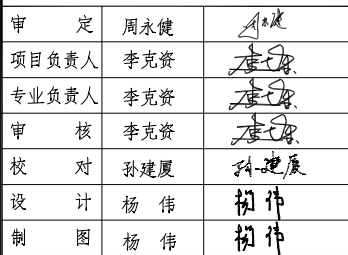 审 定 周永健 周永健
项目负责人 李克资
专业负责人 李克资
审 核 李克资
校 对 孙建厦 孙建厦
设 计 杨 伟 杨 伟
制 图 杨 伟 杨 伟